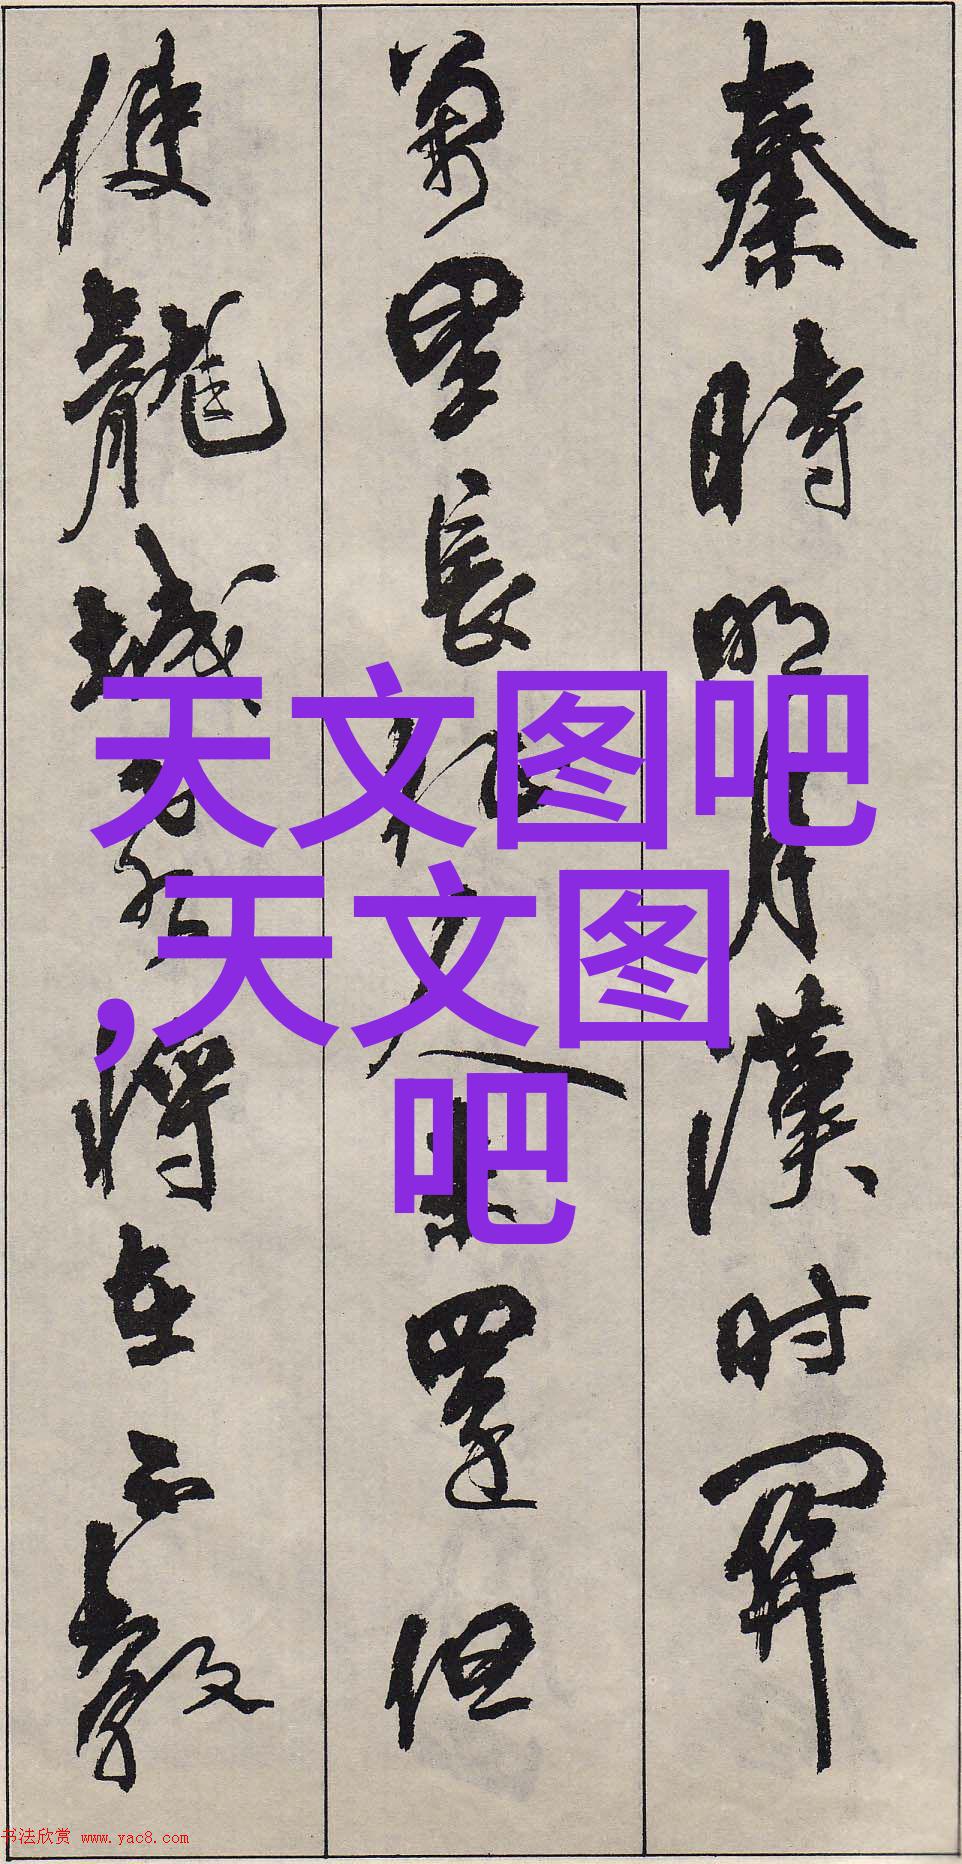 秦時明月漢时関
萬里長征人未還但
使龍城飛将在不教
天文图吧
,天文图
吧
书法欣赏 www.yac8.com